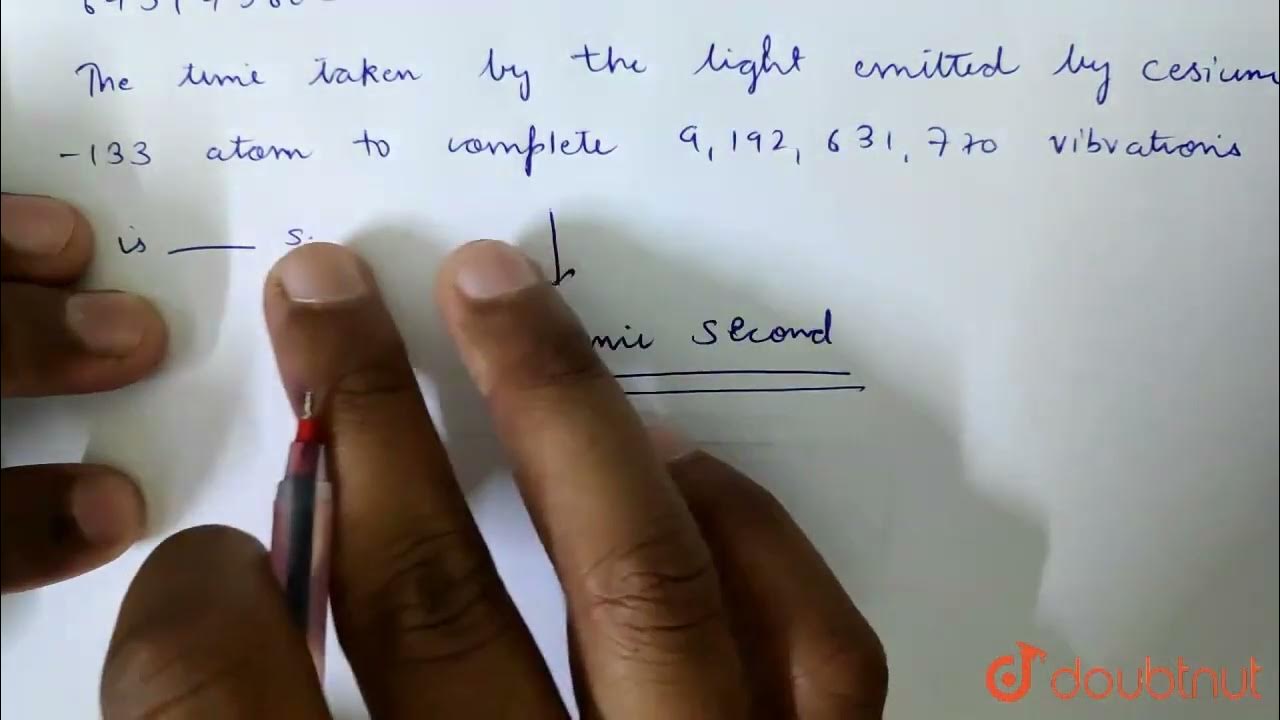 The time taken by the light emitted by cesium
-133 atom to complete 9,192,631,770 vibrations
is ___ s.
second
doubtnut